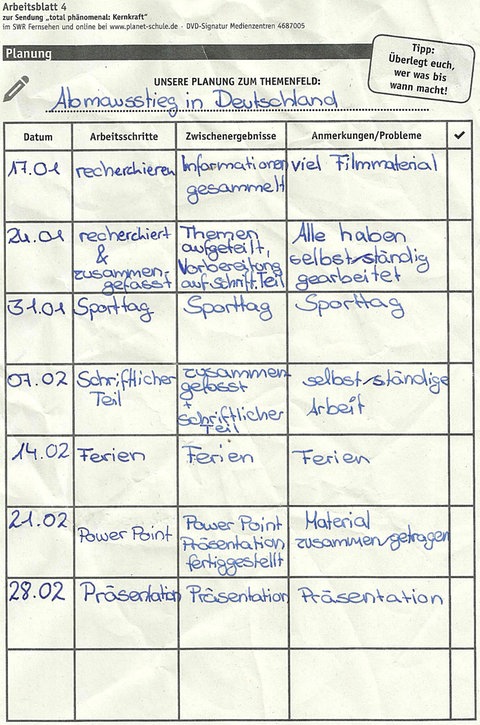 Arbeitsblatt 4
zur Sendung „total phänomenal: Kernkraft“
im SWR Fernsehen und online bei www.planet-schule.de · DVD-Signatur Medienzentren 4687005
Planung
Tipp:
Überlegt euch,
wer was bis
wann macht!
UNSERE PLANUNG ZUM THEMENFELD:
Atomausstieg in Deutschland
Datum Arbeitsschritte Zwischenergebnisse Anmerkungen/Probleme ✓
17.01 recherchieren Informationen viel Filmmaterial
gesammelt
24.01 recherchiert Themen Alle haben
& aufgeteilt, selbst/ständig
zusammen, Vorbereitung gearbeitet
gefasst auf Schrift. Teil
31.01 Sporttag Sporttag Sporttag
07.02 Schriftlicher zusammen selbst/ständige
Teil gefasst Arbeit
+
schriftlicher
Teil
14.02 Ferien Ferien Ferien
21.02 Power Point Power Point Material
Präsentation zusammen/getragen
fertiggestellt
28.02 Präsentation Präsentation Präsentation